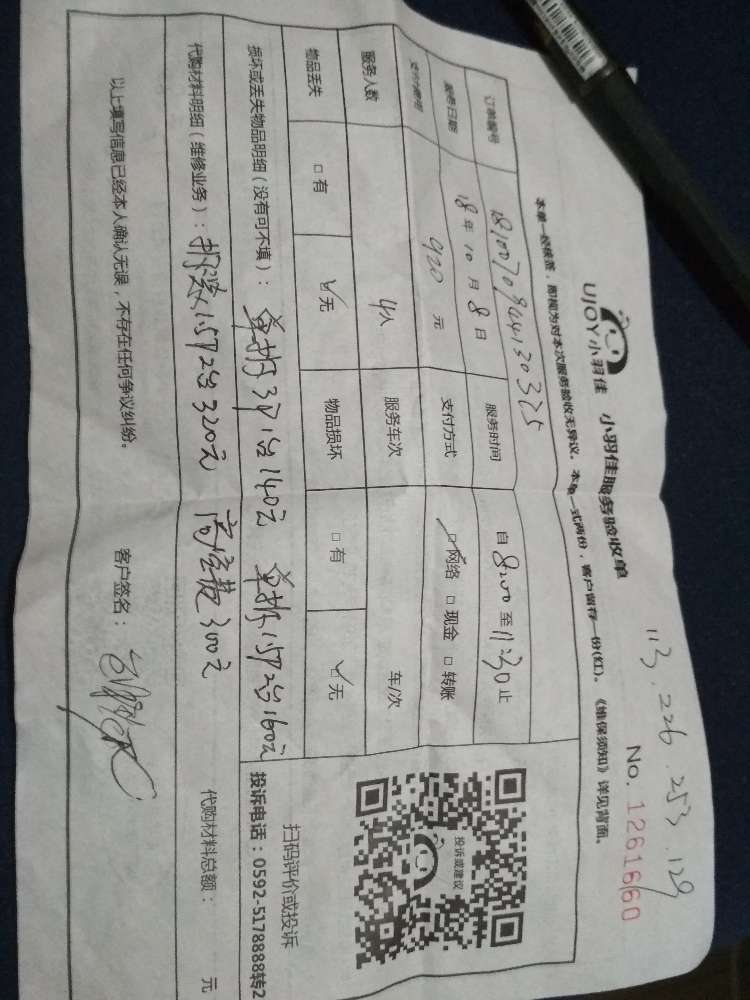 113.226.253.129
No. 1261660
UJOY小羽佳 小羽佳服务验收单
本单一经核签，即视为对本次服务验收无异议。本单一式两份，客户留存一份(红)。《维保须知》详见背面。
订单编号 1810070944130325 服务时间 自 8:00 至 11:30 止
服务日期 18 年 10 月 8 日 支付方式 ☑网络 □现金 □转账
支付费用 920 元
服务人数 4人 服务车次 车/次
物品丢失 □有 ☑无 物品损坏 □有 ☑无
投诉或建议
扫码评价或投诉
投诉电话：0592-5178888转2
损坏或丢失物品明细（没有可不填）： 单拆3P1台140元 单拆1.5P2台160元
代购材料明细（维修业务）： 拆装1.5P2台320元 高空费300元 代购材料总额： 元
以上填写信息已经本人确认无误，不存在任何争议纠纷。 客户签名：